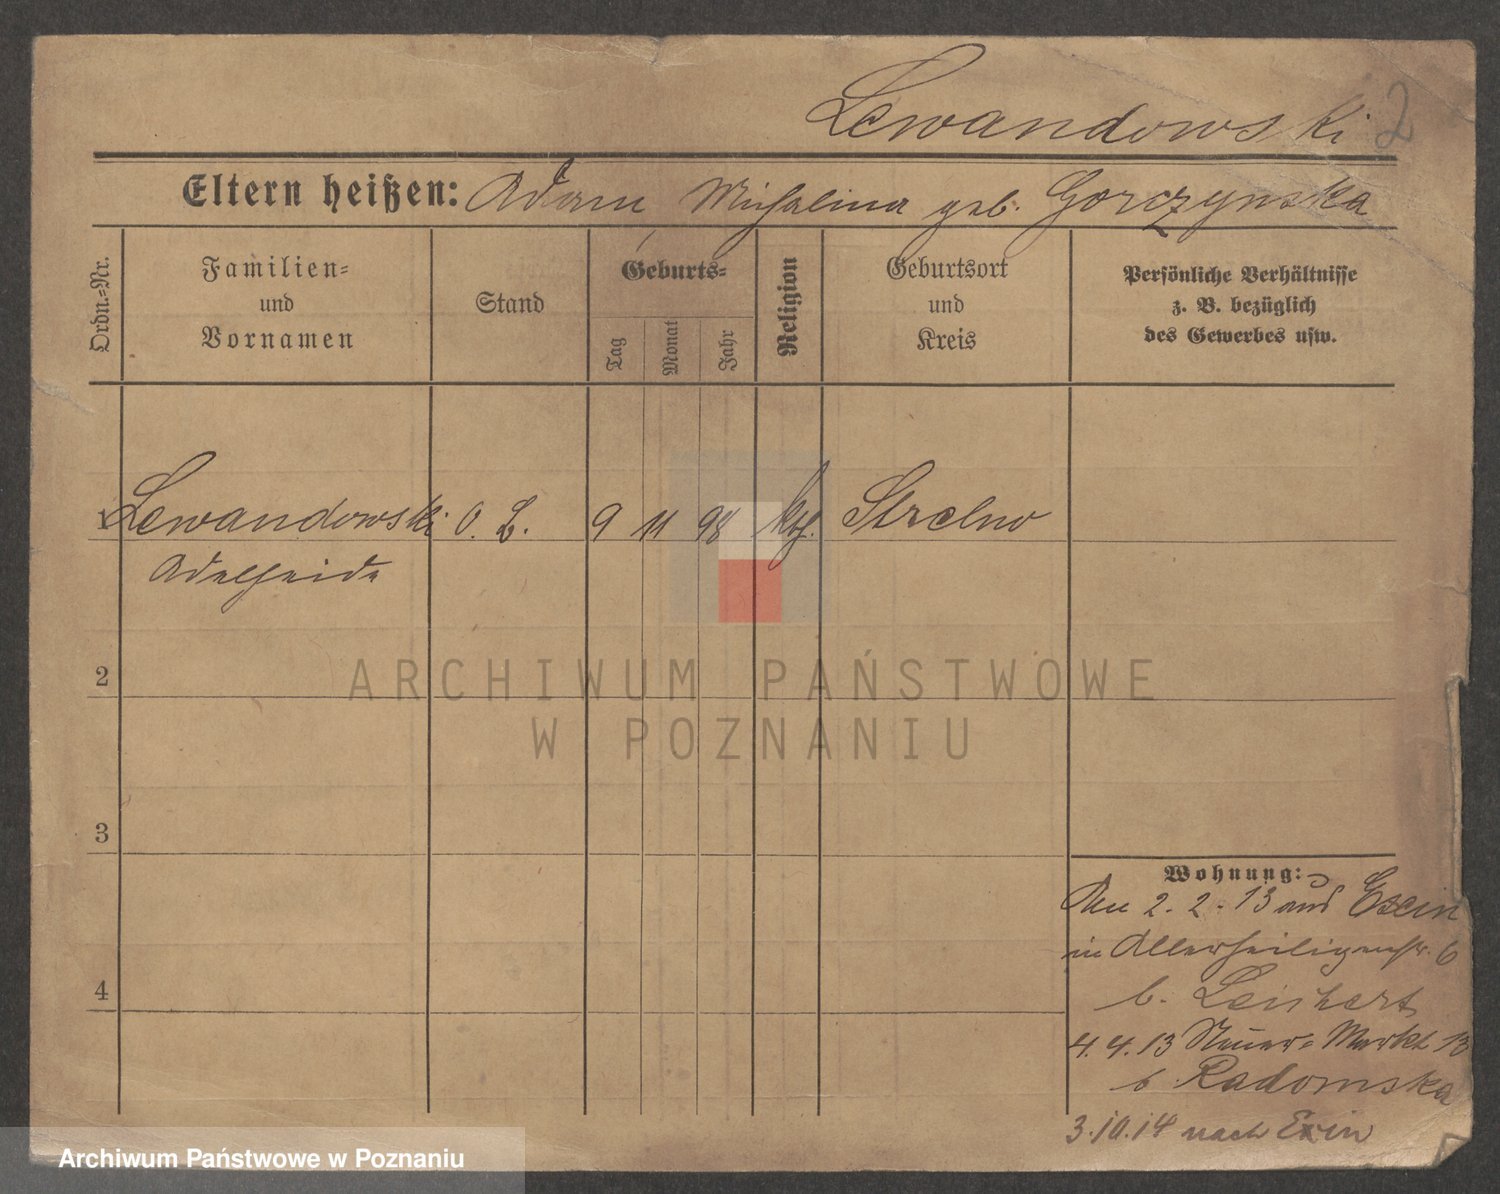 Lewandowski 2
Eltern heißen: Adam Michalina geb. Gorczynska
Ordn.-Nr.
Familien-
und
Vornamen
Stand
Geburts-
Tag
Monat
Jahr
Religion
Geburtsort
und
Kreis
Persönliche Verhältnisse
z. B. bezüglich
des Gewerbes usw.
1 Lewandowski O. L. 9 11 98 kth. Strelno
Adelheide
2
3
4
Wohnung:
2. 2. 13 aus Exin
in Allerheiligenstr. 6
b. Leichert
4. 4. 13 Neuer-Markt 13
b Radomska
3.10.14 nach Exin
ARCHIWUM PAŃSTWOWE
W POZNANIU
Archiwum Państwowe w Poznaniu